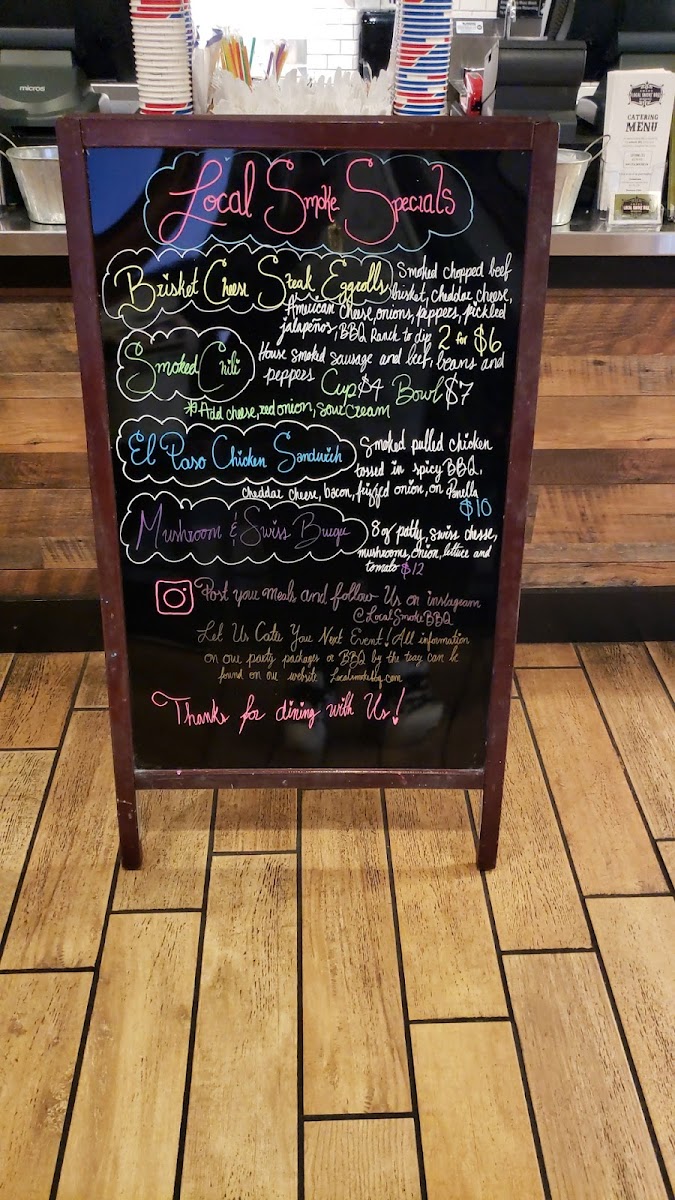 micros
LOCAL SMOKE BBQ
CATERING
MENU
LOCAL SMOKE BBQ
Local Smoke Specials
Brisket Cheese Steak Eggrolls
Smoked chopped beef
brisket, cheddar cheese,
American cheese, onions, peppers, pickled
jalapeños, BBQ Ranch to dip 2 for $6
Smoked Chili
House smoked sausage and beef, beans and
peppers Cup $4 Bowl $7
* Add cheese, red onion, sour cream
El Paso Chicken Sandwich
Smoked pulled chicken
tossed in spicy BBQ,
cheddar cheese, bacon, frizzled onion, on Panella
$10
Mushroom & Swiss Burger
8 oz patty, swiss cheese,
mushrooms, onion, lettuce and
tomato $12
Post your meals and follow Us on instagram
@LocalSmokeBBQ
Let Us Cater Your Next Event! All information
on our party packages or BBQ by the tray can be
found on our website Localsmokebbq.com
Thanks for dining with Us!